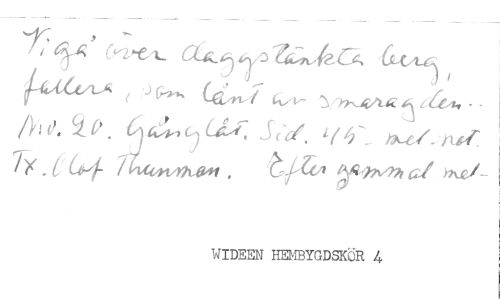 Vi gå över daggstänkta berg,
fallera, som lånt av smaragden..
No. 20. Gånglåt. Sid. 45- mel.-not.
Tx. Olof Thunman. Efter gammal mel-
WIDEEN HEMBYGDSKÖR 4